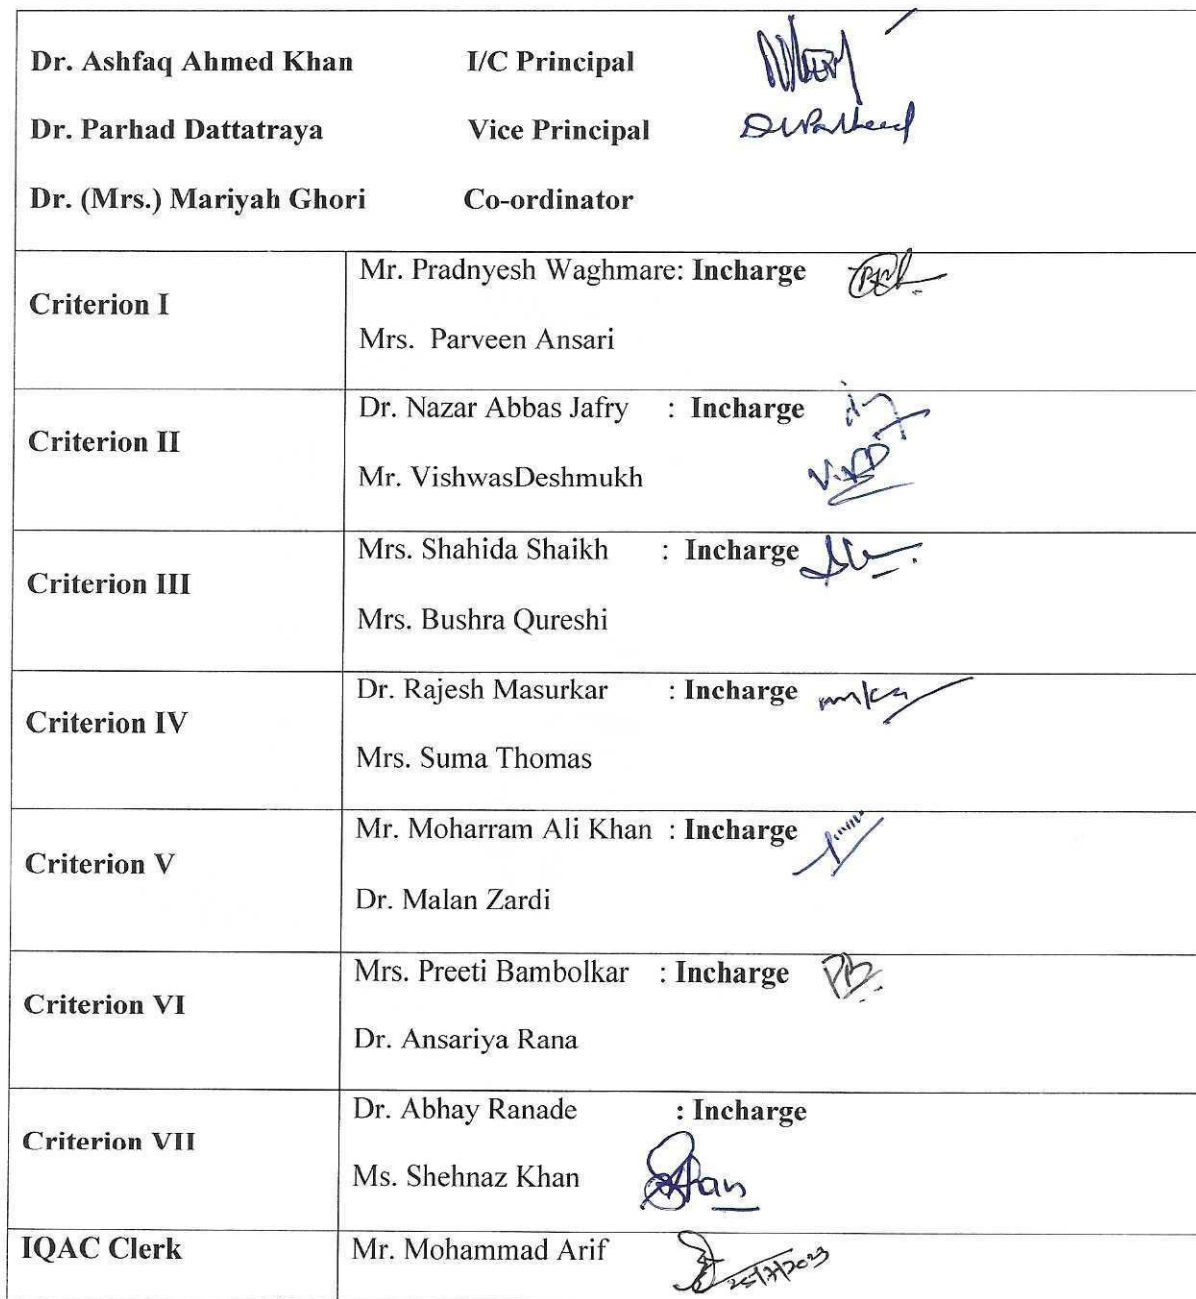 Dr. Ashfaq Ahmed Khan I/C Principal
Dr. Parhad Dattatraya Vice Principal
Dr. (Mrs.) Mariyah Ghori Co-ordinator
Criterion I
Mr. Pradnyesh Waghmare: Incharge
Mrs. Parveen Ansari
Criterion II
Dr. Nazar Abbas Jafry : Incharge
Mr. VishwasDeshmukh
Criterion III
Mrs. Shahida Shaikh : Incharge
Mrs. Bushra Qureshi
Criterion IV
Dr. Rajesh Masurkar : Incharge
Mrs. Suma Thomas
Criterion V
Mr. Moharram Ali Khan : Incharge
Dr. Malan Zardi
Criterion VI
Mrs. Preeti Bambolkar : Incharge PB
Dr. Ansariya Rana
Criterion VII
Dr. Abhay Ranade : Incharge
Ms. Shehnaz Khan
IQAC Clerk
Mr. Mohammad Arif 25/7/2023